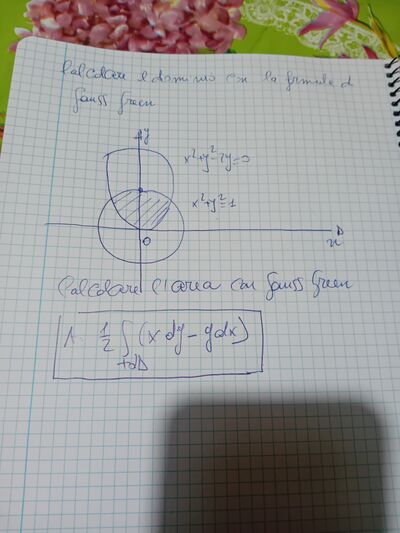 Calcolare il dominio con la formula d
Gauss Green
y
x²+y²-2y=0
x²+y²=1
O
x
Calcolare l'area con Gauss Green
A = 1/2 ∫+∂D (x dy - y dx)